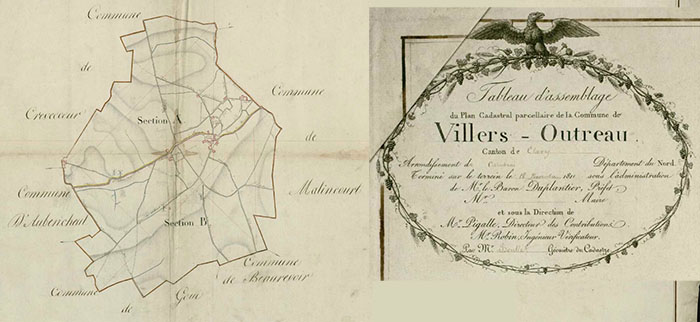 Commune
de
Crevecoeur
Commune
de
Malincourt
Section A
Commune
D'Aubencheul
Section B
Commune
de Beaurevoir
Commune
de
Goui
Tableau d'assemblage
du Plan Cadastral parcellaire de la Commune de
Villers - Outreau
Canton de Clary
Arrondissement de Cambrai Département du Nord
Terminé sur le terrein le 181 sous l'administration
de Mr. le Baron Duplantier, Préfet
Mr. Maire
et sous la Direction de
Mr. Pigalle, Directeur des Contributions
Mr. Robin, Ingénieur Vérificateur.
Par Mr. Géomètre du Cadastre